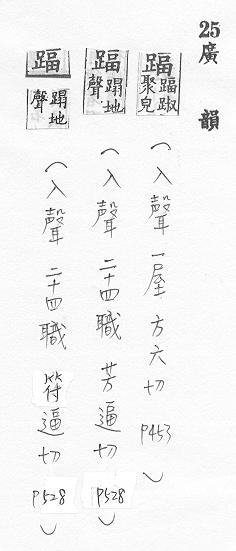 25廣韻
䠋 䠋踧聚皃
（入聲 一屋 方六切 P453）
䠋 蹋地聲
（入聲 二十四職 芳逼切 P528）
䠋 蹋地聲
（入聲 二十四職 符逼切 P528）